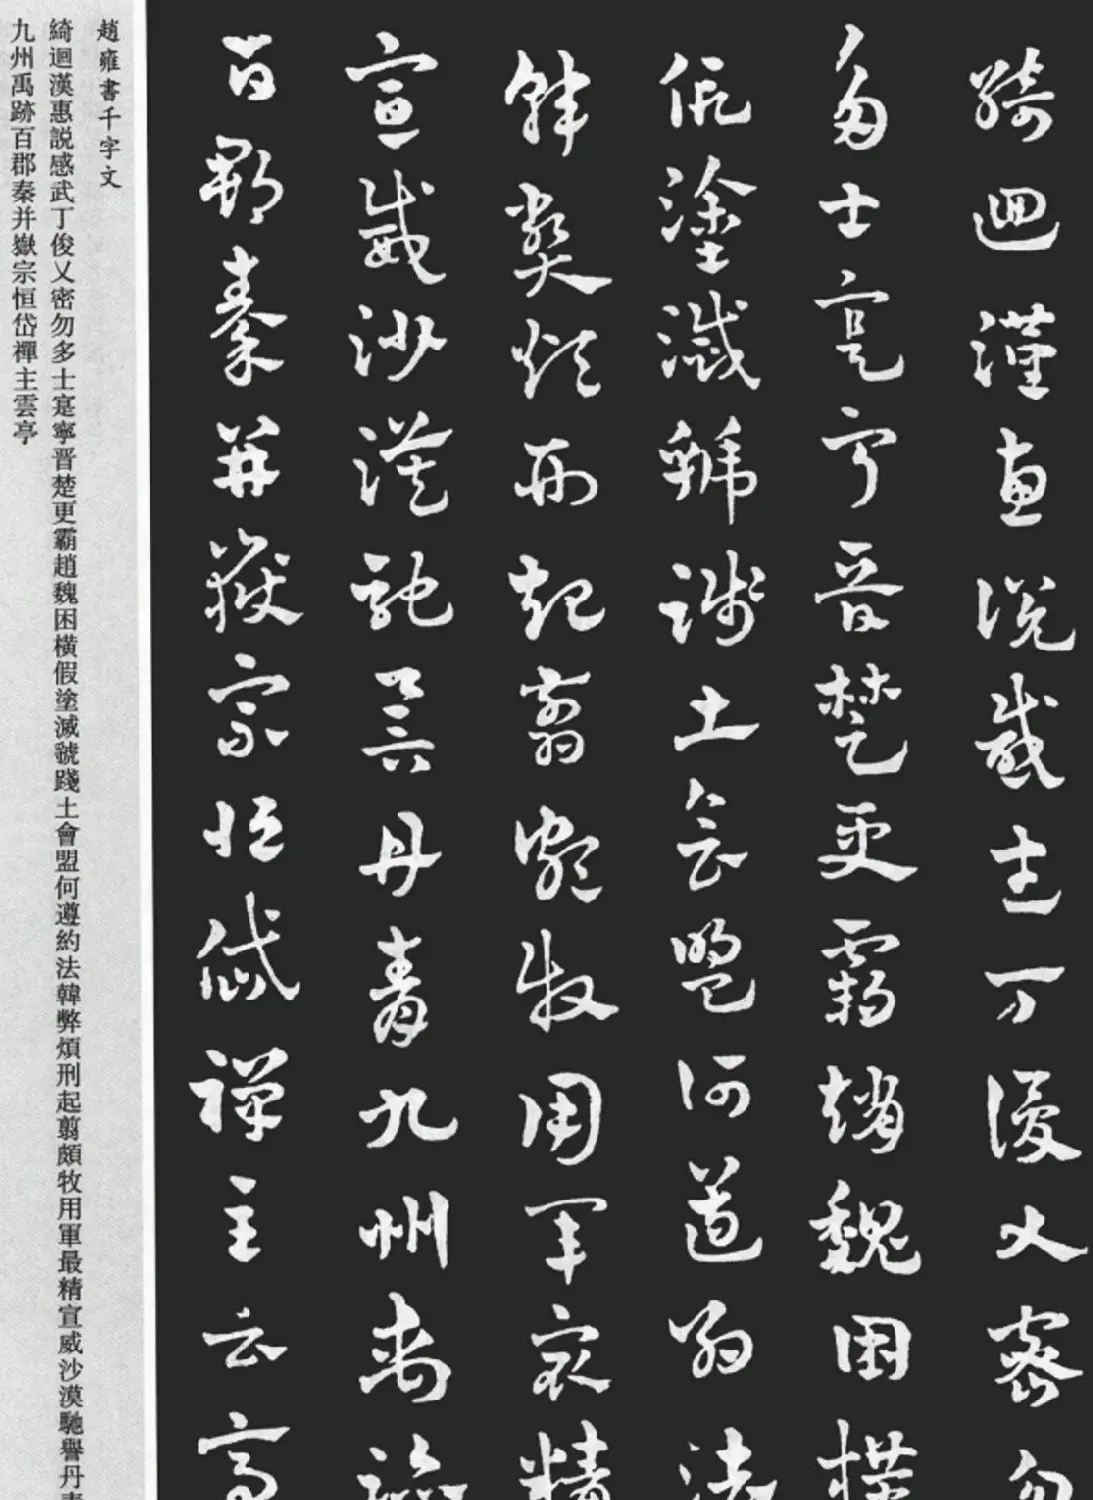 綺迴漢惠説感武丁俊乂密勿
多士寔寧晋楚更霸趙魏困橫
假塗滅虢踐土會盟何遵約法
韓弊煩刑起翦頗牧用軍最精
宣威沙漠馳譽丹青九州禹跡
百郡秦并嶽宗恒岱禪主云亭
趙雍書千字文
綺迴漢惠説感武丁俊乂密勿多士寔寧晋楚更霸趙魏困橫假塗滅虢踐土會盟何遵約法韓弊煩刑起翦頗牧用軍最精宣威沙漠馳譽丹青
九州禹跡百郡秦并嶽宗恒岱禪主雲亭